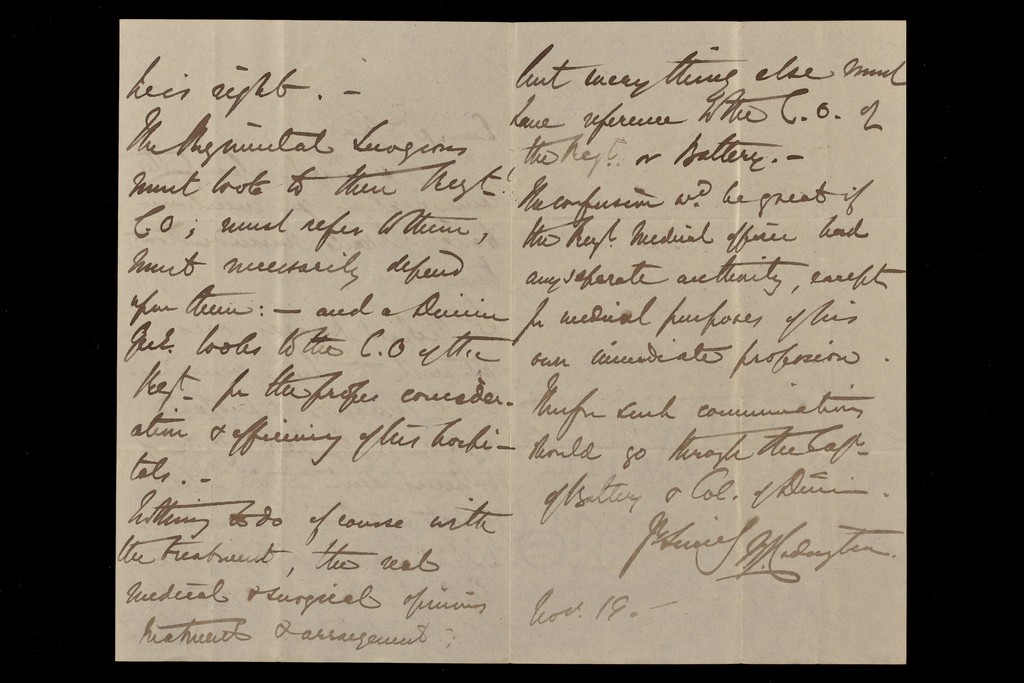 he is right. -
The Regimental Surgeons
must look to their Regtl
CO; must refer to them,
must necessarily depend
upon them: - and a Division
Genl. looks to the C.O of the
Regt. for the proper consider-
ation & efficiency of his hospi-
tals. -
Nothing to do of course with
the treatment, the real
medical & surgical opinions
treatment & arrangement;
but everything else must
have reference to the C.O. of
the Regt. or Battery. -
The confusion wd. be great if
the Regt. Medical officer had
any separate authority, except
for medical purposes of his
own immediate profession.
Therefore such communications
should go through the Capt.
of Battery & Col. of Division.
Yr Sincely W J Codrington.
Nov. 19. -